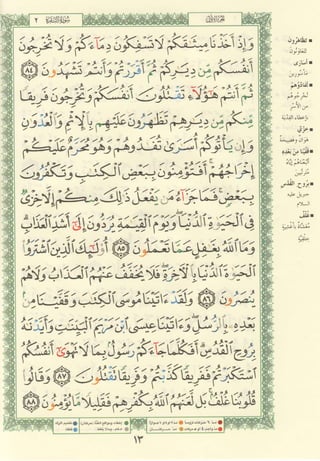 سُورَةُ البَقَرَةِ ٢
الجُزْءُ الأوَّلُ
وَإِذْ أَخَذْنَا مِيثَٰقَكُمْ لَا تَسْفِكُونَ دِمَآءَكُمْ وَلَا تُخْرِجُونَ
أَنفُسَكُم مِّن دِيَٰرِكُمْ ثُمَّ أَقْرَرْتُمْ وَأَنتُمْ تَشْهَدُونَ ٨٤
ثُمَّ أَنتُمْ هَٰٓؤُلَآءِ تَقْتُلُونَ أَنفُسَكُمْ وَتُخْرِجُونَ فَرِيقًا
مِّنكُم مِّن دِيَٰرِهِمْ تَظَٰهَرُونَ عَلَيْهِم بِٱلْإِثْمِ وَٱلْعُدْوَٰنِ
وَإِن يَأْتُوكُمْ أُسَٰرَىٰ تُفَٰدُوهُمْ وَهُوَ مُحَرَّمٌ عَلَيْكُمْ
إِخْرَاجُهُمْ أَفَتُؤْمِنُونَ بِبَعْضِ ٱلْكِتَٰبِ وَتَكْفُرُونَ
بِبَعْضٍ فَمَا جَزَآءُ مَن يَفْعَلُ ذَٰلِكَ مِنكُمْ إِلَّا خِزْىٌ
فِى ٱلْحَيَوٰةِ ٱلدُّنْيَا وَيَوْمَ ٱلْقِيَٰمَةِ يُرَدُّونَ إِلَىٰٓ أَشَدِّ ٱلْعَذَابِ
وَمَا ٱللَّهُ بِغَٰفِلٍ عَمَّا تَعْمَلُونَ ٨٥ أُو۟لَٰٓئِكَ ٱلَّذِينَ ٱشْتَرَوُا۟
ٱلْحَيَوٰةَ ٱلدُّنْيَا بِٱلْءَاخِرَةِ فَلَا يُخَفَّفُ عَنْهُمُ ٱلْعَذَابُ وَلَا هُمْ
يُنصَرُونَ ٨٦ وَلَقَدْ ءَاتَيْنَا مُوسَى ٱلْكِتَٰبَ وَقَفَّيْنَا مِنۢ
بَعْدِهِۦ بِٱلرُّسُلِ وَءَاتَيْنَا عِيسَى ٱبْنَ مَرْيَمَ ٱلْبَيِّنَٰتِ وَأَيَّدْنَٰهُ
بِرُوحِ ٱلْقُدُسِ أَفَكُلَّمَا جَآءَكُمْ رَسُولٌۢ بِمَا لَا تَهْوَىٰٓ أَنفُسُكُمُ
ٱسْتَكْبَرْتُمْ فَفَرِيقًا كَذَّبْتُمْ وَفَرِيقًا تَقْتُلُونَ ٨٧ وَقَالُوا۟
قُلُوبُنَا غُلْفٌۢ بَل لَّعَنَهُمُ ٱللَّهُ بِكُفْرِهِمْ فَقَلِيلًا مَّا يُؤْمِنُونَ ٨٨
١٣
تظاهرون
أسارى
تفادوهم
خزي
قفينا من بعده
بروح القدس
جبريل عليه
السلام
غلف